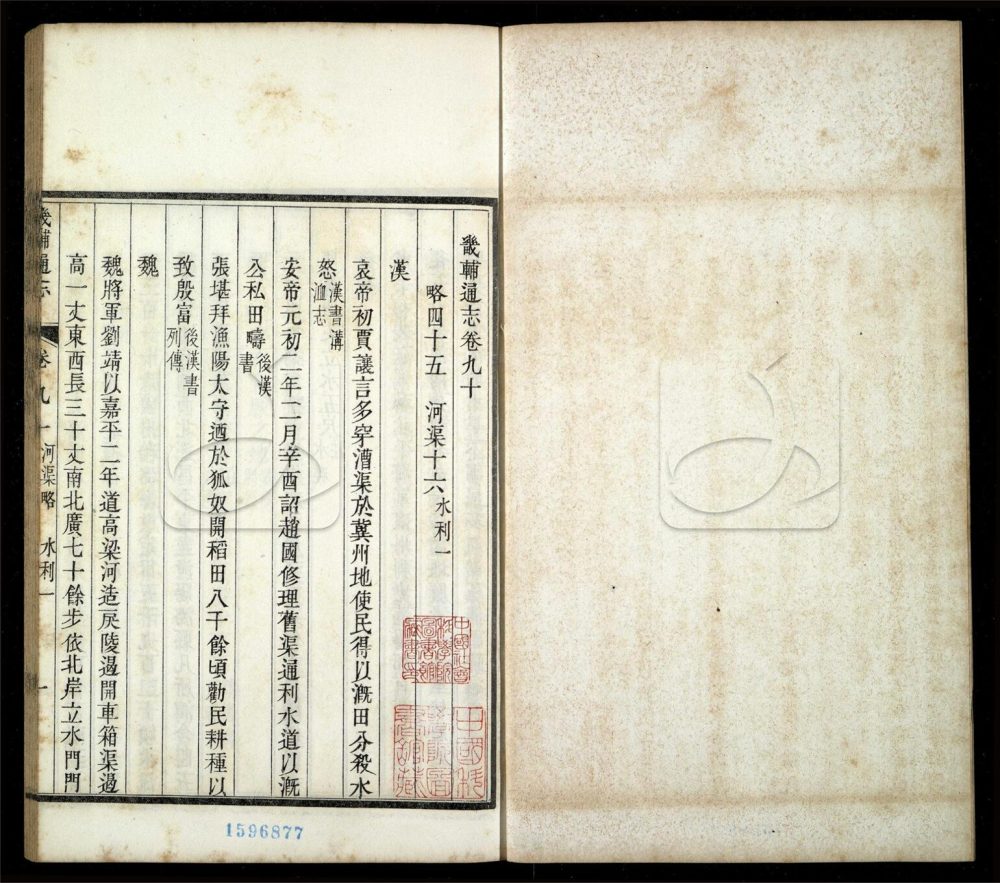 畿輔通志卷九十
略四十五 河渠十六 水利一
漢
哀帝初賈讓言多穿漕渠於冀州地使民得以溉田分殺水
怒漢書溝洫志
安帝元初二年二月辛酉詔趙國修理舊渠通利水道以溉
公私田疇後漢書
張堪拜漁陽太守迺於狐奴開稻田八千餘頃勸民耕種以
致殷富後漢書列傳
魏
魏將軍劉靖以嘉平二年道高梁河造戾陵遏開車箱渠遏
高一丈東西長三十丈南北廣七十餘步依北岸立水門門
畿輔通志 卷九十 河渠略 水利一 一
1596877